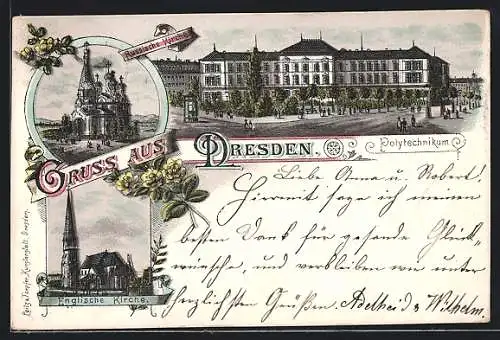 Russische Kirche.
GRUSS AUS DRESDEN.
Polytechnikum
Liebe Anna u. Robert!
Hiermit sage ich meinen
besten Dank für gesande Glück-
wünsche, und verbleiben wie unter
herzlichsten Grüßen. Adelheid & Wilhelm.
Englische Kirche.
Dresden.